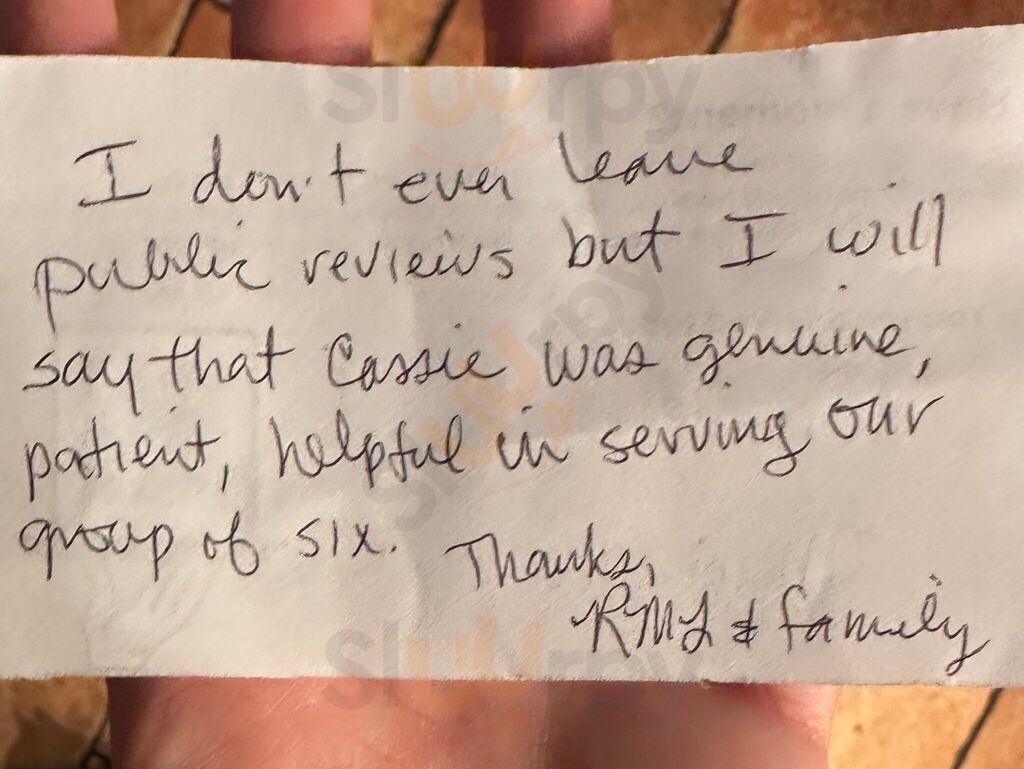 I don't ever leave
public reviews but I will
say that Cassie was genuine,
patient, helpful in serving our
group of six. Thanks,
RML & family
Sluurpy
Sluurpy
Sluurpy
Sluurpy